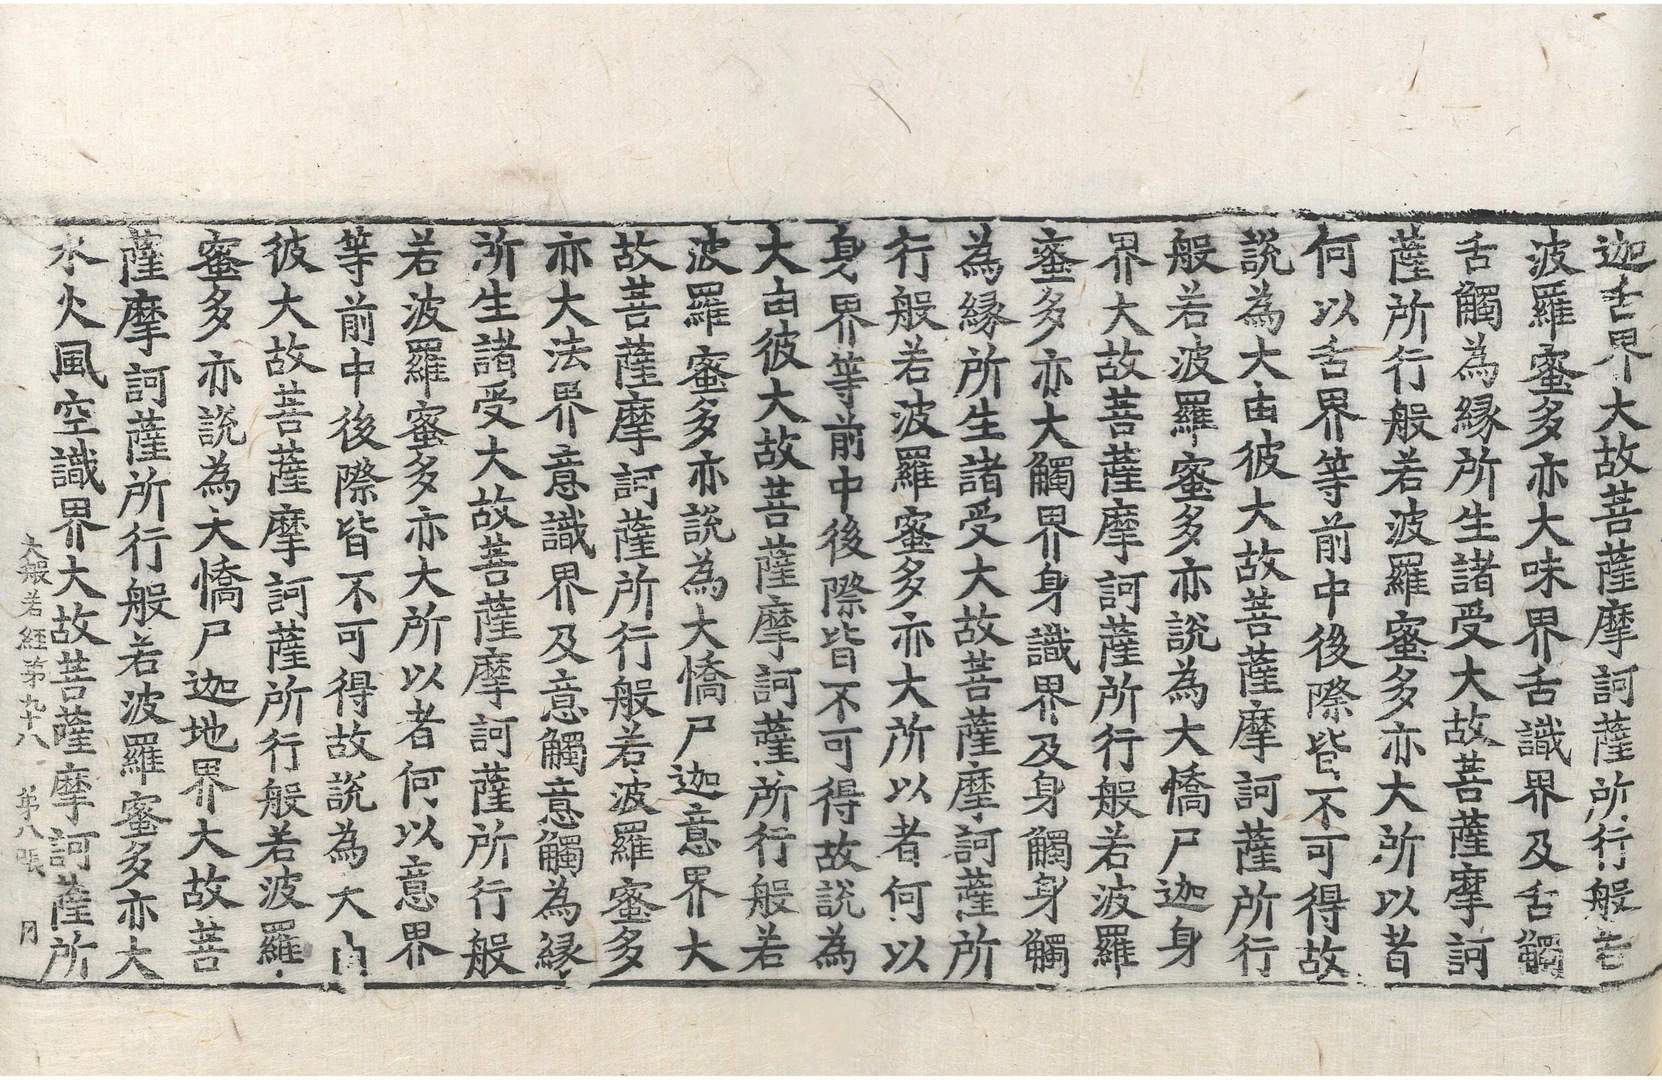 迦舌界大故菩薩摩訶薩所行般若
波羅蜜多亦大味界舌識界及舌觸
舌觸為緣所生諸受大故菩薩摩訶
薩所行般若波羅蜜多亦大所以者
何以舌界等前中後際皆不可得故
說為大由彼大故菩薩摩訶薩所行
般若波羅蜜多亦說為大憍尸迦身
界大故菩薩摩訶薩所行般若波羅
蜜多亦大觸界身識界及身觸身觸
為緣所生諸受大故菩薩摩訶薩所
行般若波羅蜜多亦大所以者何以
身界等前中後際皆不可得故說為
大由彼大故菩薩摩訶薩所行般若
波羅蜜多亦說為大憍尸迦意界大
故菩薩摩訶薩所行般若波羅蜜多
亦大法界意識界及意觸意觸為緣
所生諸受大故菩薩摩訶薩所行般
若波羅蜜多亦大所以者何以意界
等前中後際皆不可得故說為大由
彼大故菩薩摩訶薩所行般若波羅
蜜多亦說為大憍尸迦地界大故菩
薩摩訶薩所行般若波羅蜜多亦大
水火風空識界大故菩薩摩訶薩所
大般若經第九十八 第八張 月